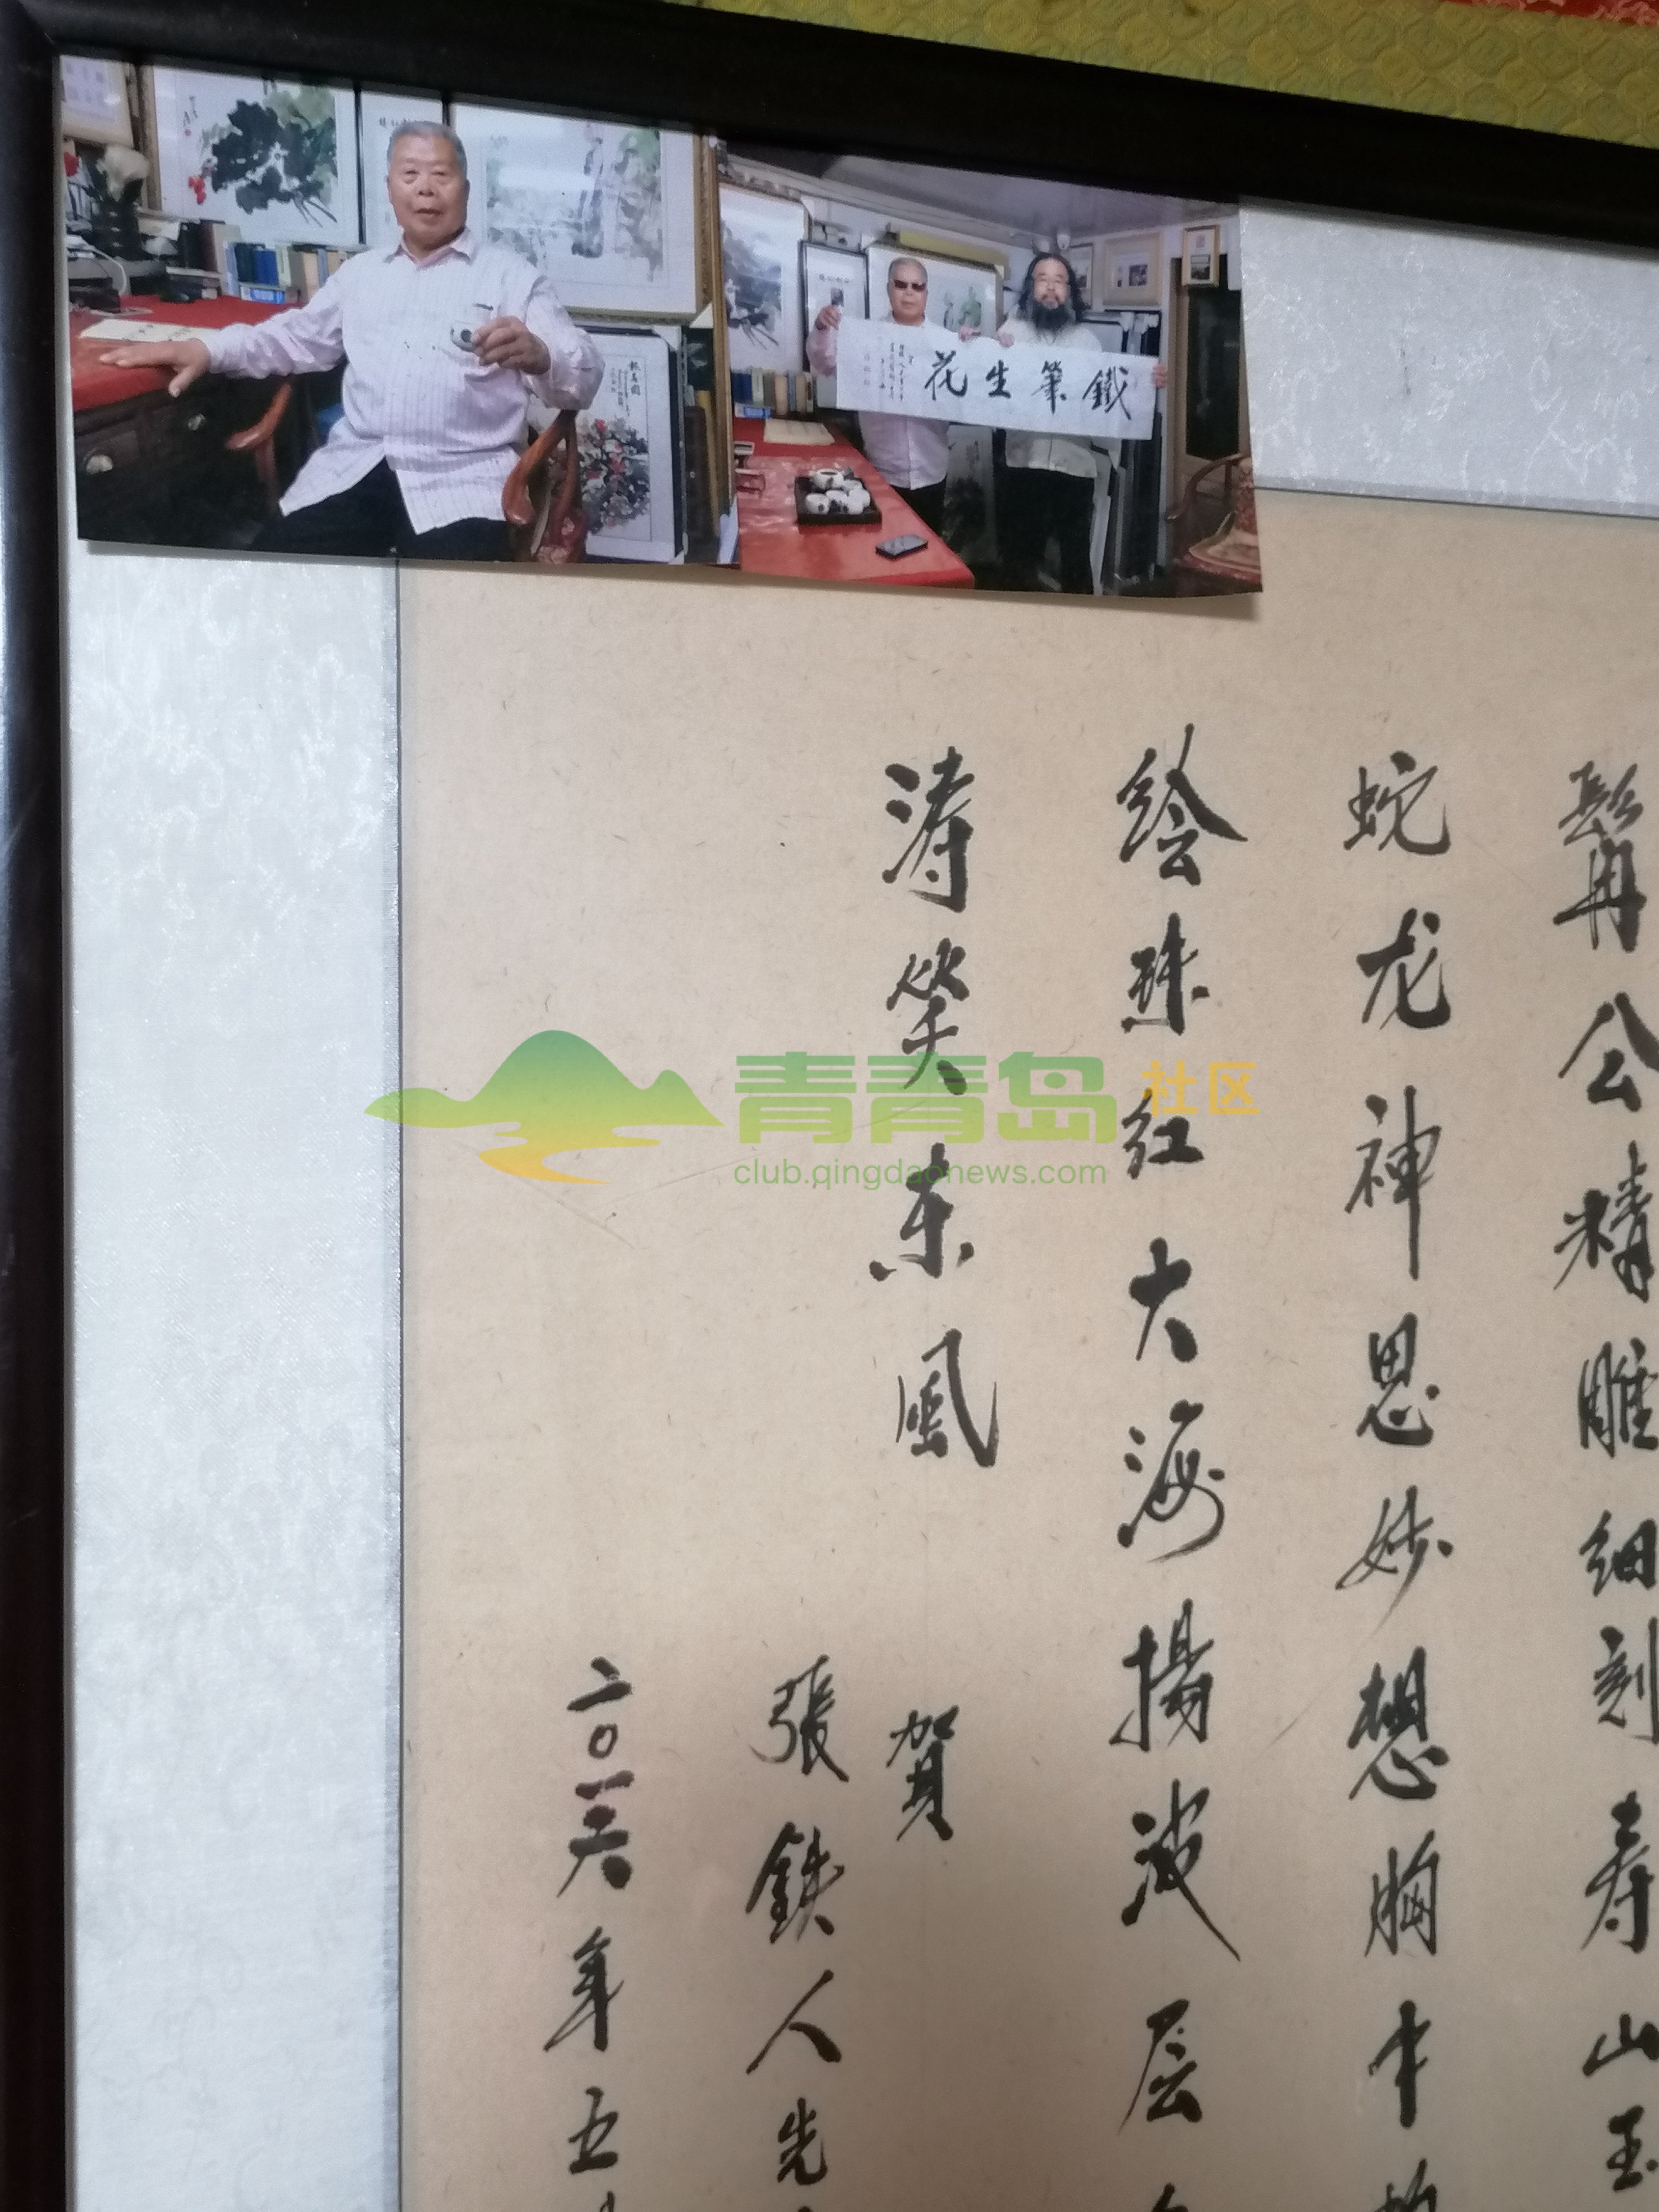 鐵筆生花
髯公精雕细刻寿山玉
蛇龙神思妙想胸中
绘珠红大海揚波层
涛笑东风
賀
張鉄人先
二〇一六年五
青青岛社区
club.qingdaonews.com